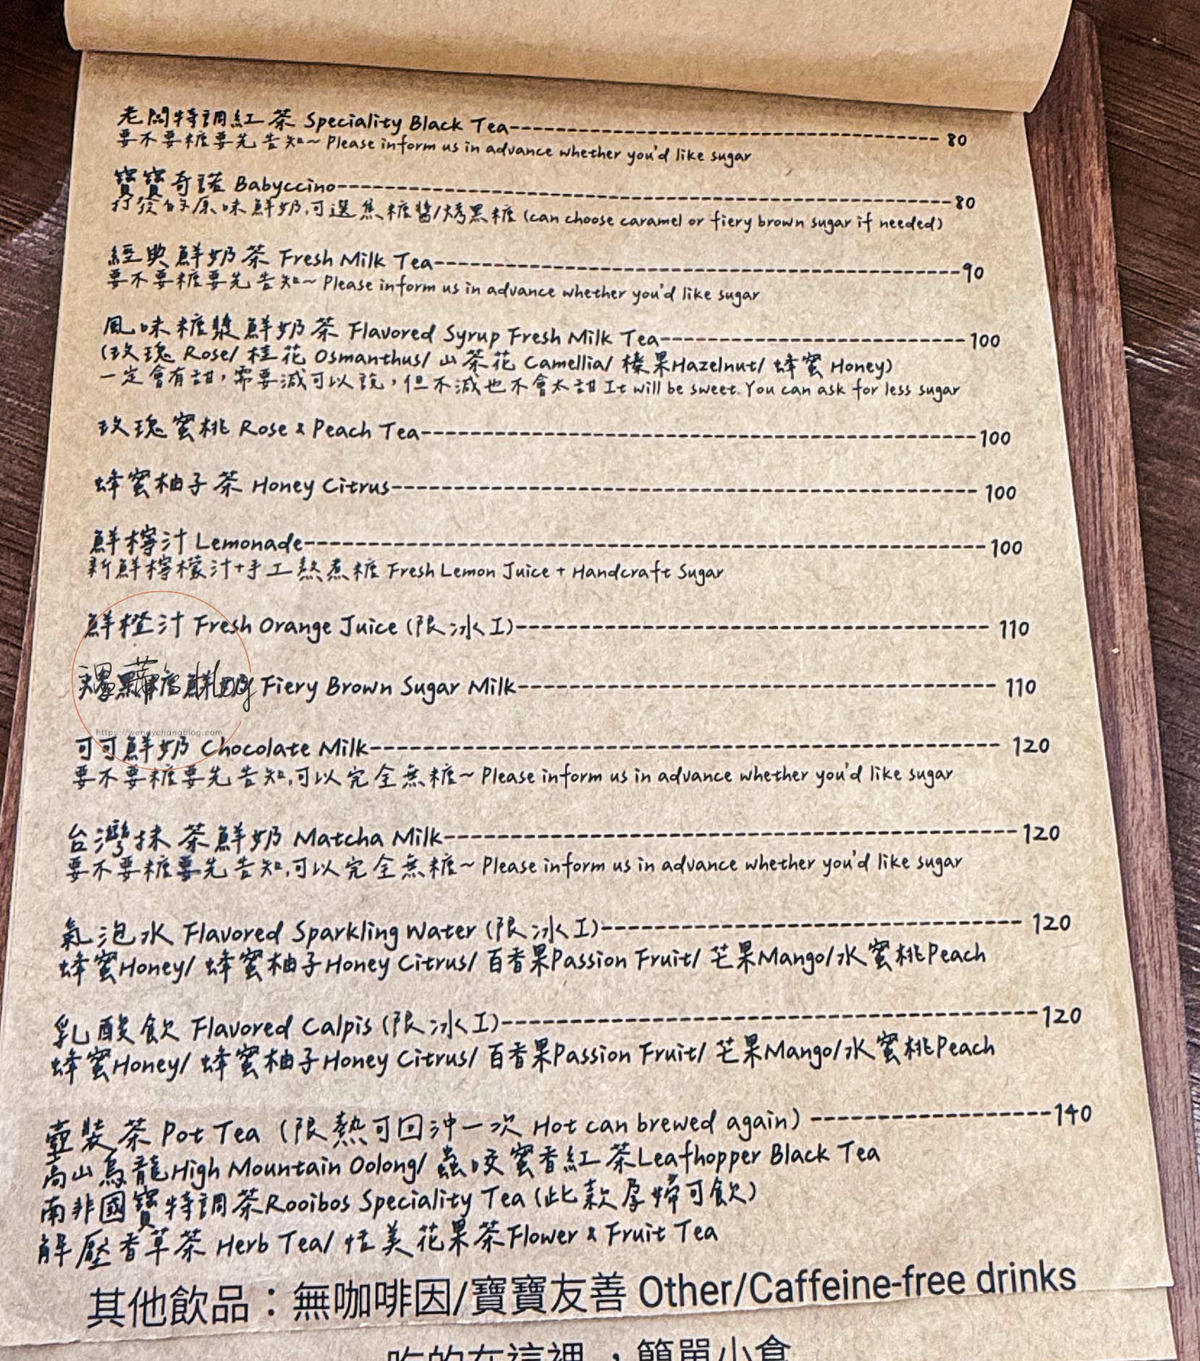 老闆特調紅茶 Speciality Black Tea--------80
要不要糖要先告知~ Please inform us in advance whether you'd like sugar
寶寶奇諾 Babyccino--------80
打發的原味鮮奶,可選焦糖醬/烤黑糖 (can choose caramel or fiery brown sugar if needed)
經典鮮奶茶 Fresh Milk Tea--------90
要不要糖要先告知~ Please inform us in advance whether you'd like sugar
風味糖漿鮮奶茶 Flavored Syrup Fresh Milk Tea--------100
(玫瑰 Rose/ 桂花 Osmanthus/ 山茶花 Camellia/ 榛果Hazelnut/ 蜂蜜 Honey)
一定會有甜，需要減可以說，但不減也不會太甜 It will be sweet. You can ask for less sugar
玫瑰蜜桃 Rose & Peach Tea--------100
蜂蜜柚子茶 Honey Citrus--------100
鮮檸汁 Lemonade--------100
新鮮檸檬汁+手工熬煮糖 Fresh Lemon Juice + Handcraft Sugar
鮮橙汁 Fresh Orange Juice (限冰工)--------110
Fiery Brown Sugar Milk--------110
https://wendychangblog.com
可可鮮奶 Chocolate Milk--------120
要不要糖要先告知,可以完全無糖~ Please inform us in advance whether you'd like sugar
台灣抹茶鮮奶 Matcha Milk--------120
要不要糖要先告知,可以完全無糖~ Please inform us in advance whether you'd like sugar
氣泡水 Flavored Sparkling Water (限冰工)--------120
蜂蜜Honey/ 蜂蜜柚子Honey Citrus/ 百香果Passion Fruit/ 芒果Mango/水蜜桃Peach
乳酸飲 Flavored Calpis (限冰工)--------120
蜂蜜Honey/ 蜂蜜柚子Honey Citrus/ 百香果Passion Fruit/ 芒果Mango/水蜜桃Peach
壺裝茶 Pot Tea (限熱可回沖一次 Hot can brewed again) --------140
高山烏龍High Mountain Oolong/ 蟲咬蜜香紅茶Leafhopper Black Tea
南非國寶特調茶Rooibos Speciality Tea (此款孕婦可飲)
解壓香草茶 Herb Tea/ 恬美花果茶Flower & Fruit Tea
其他飲品：無咖啡因/寶寶友善 Other/Caffeine-free drinks
吃的在這裡，簡單小食